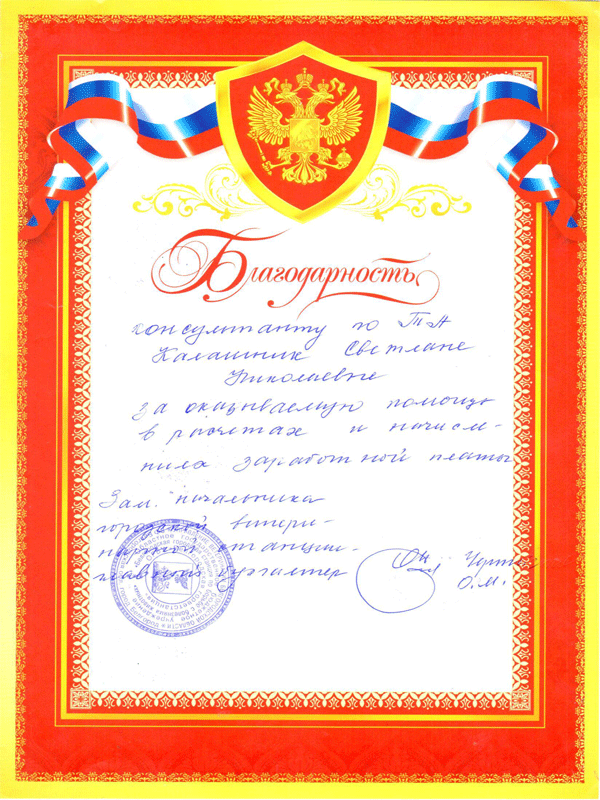 Благодарность
консультанту по ТА
Калашник Светлане
Николаевне
за оказываемую помощь
в расчетах и начисле-
ния заработной платы
Зам. начальника
городской ветери-
нарной станции-
главный бухгалтер
О.М.